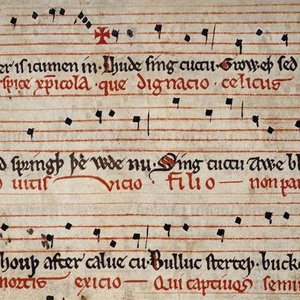 er is icumen in. Lhude sing cuccu. Groweþ sed
spice xp̄icola. que dignacio celicus
d springþ þe wde nu. Sing cuccu Awe bl
o uitis vicio. filio non pa
houþ after calue cu. Bulluc sterteþ. bucke
mortis exicio. Qui captiuos semi